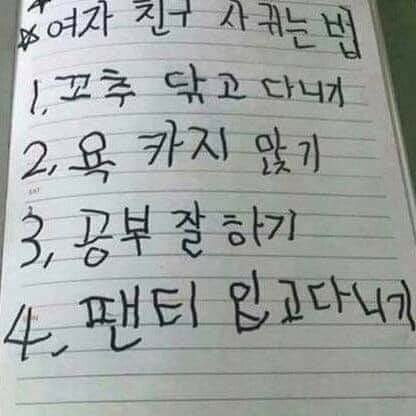 ☆여자 친구 사귀는 법
1, 꼬추 닦고 다니기
2, 욕 카지 앖기
3, 공부 잘 하기
4, 팬티 입고다니기